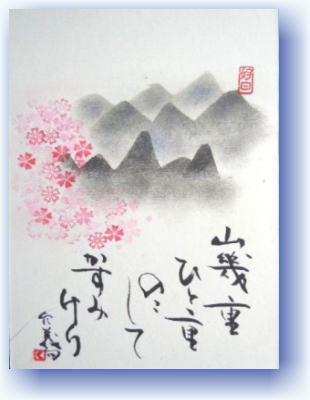 山幾重
ひと重
のこして
かすみ
けり